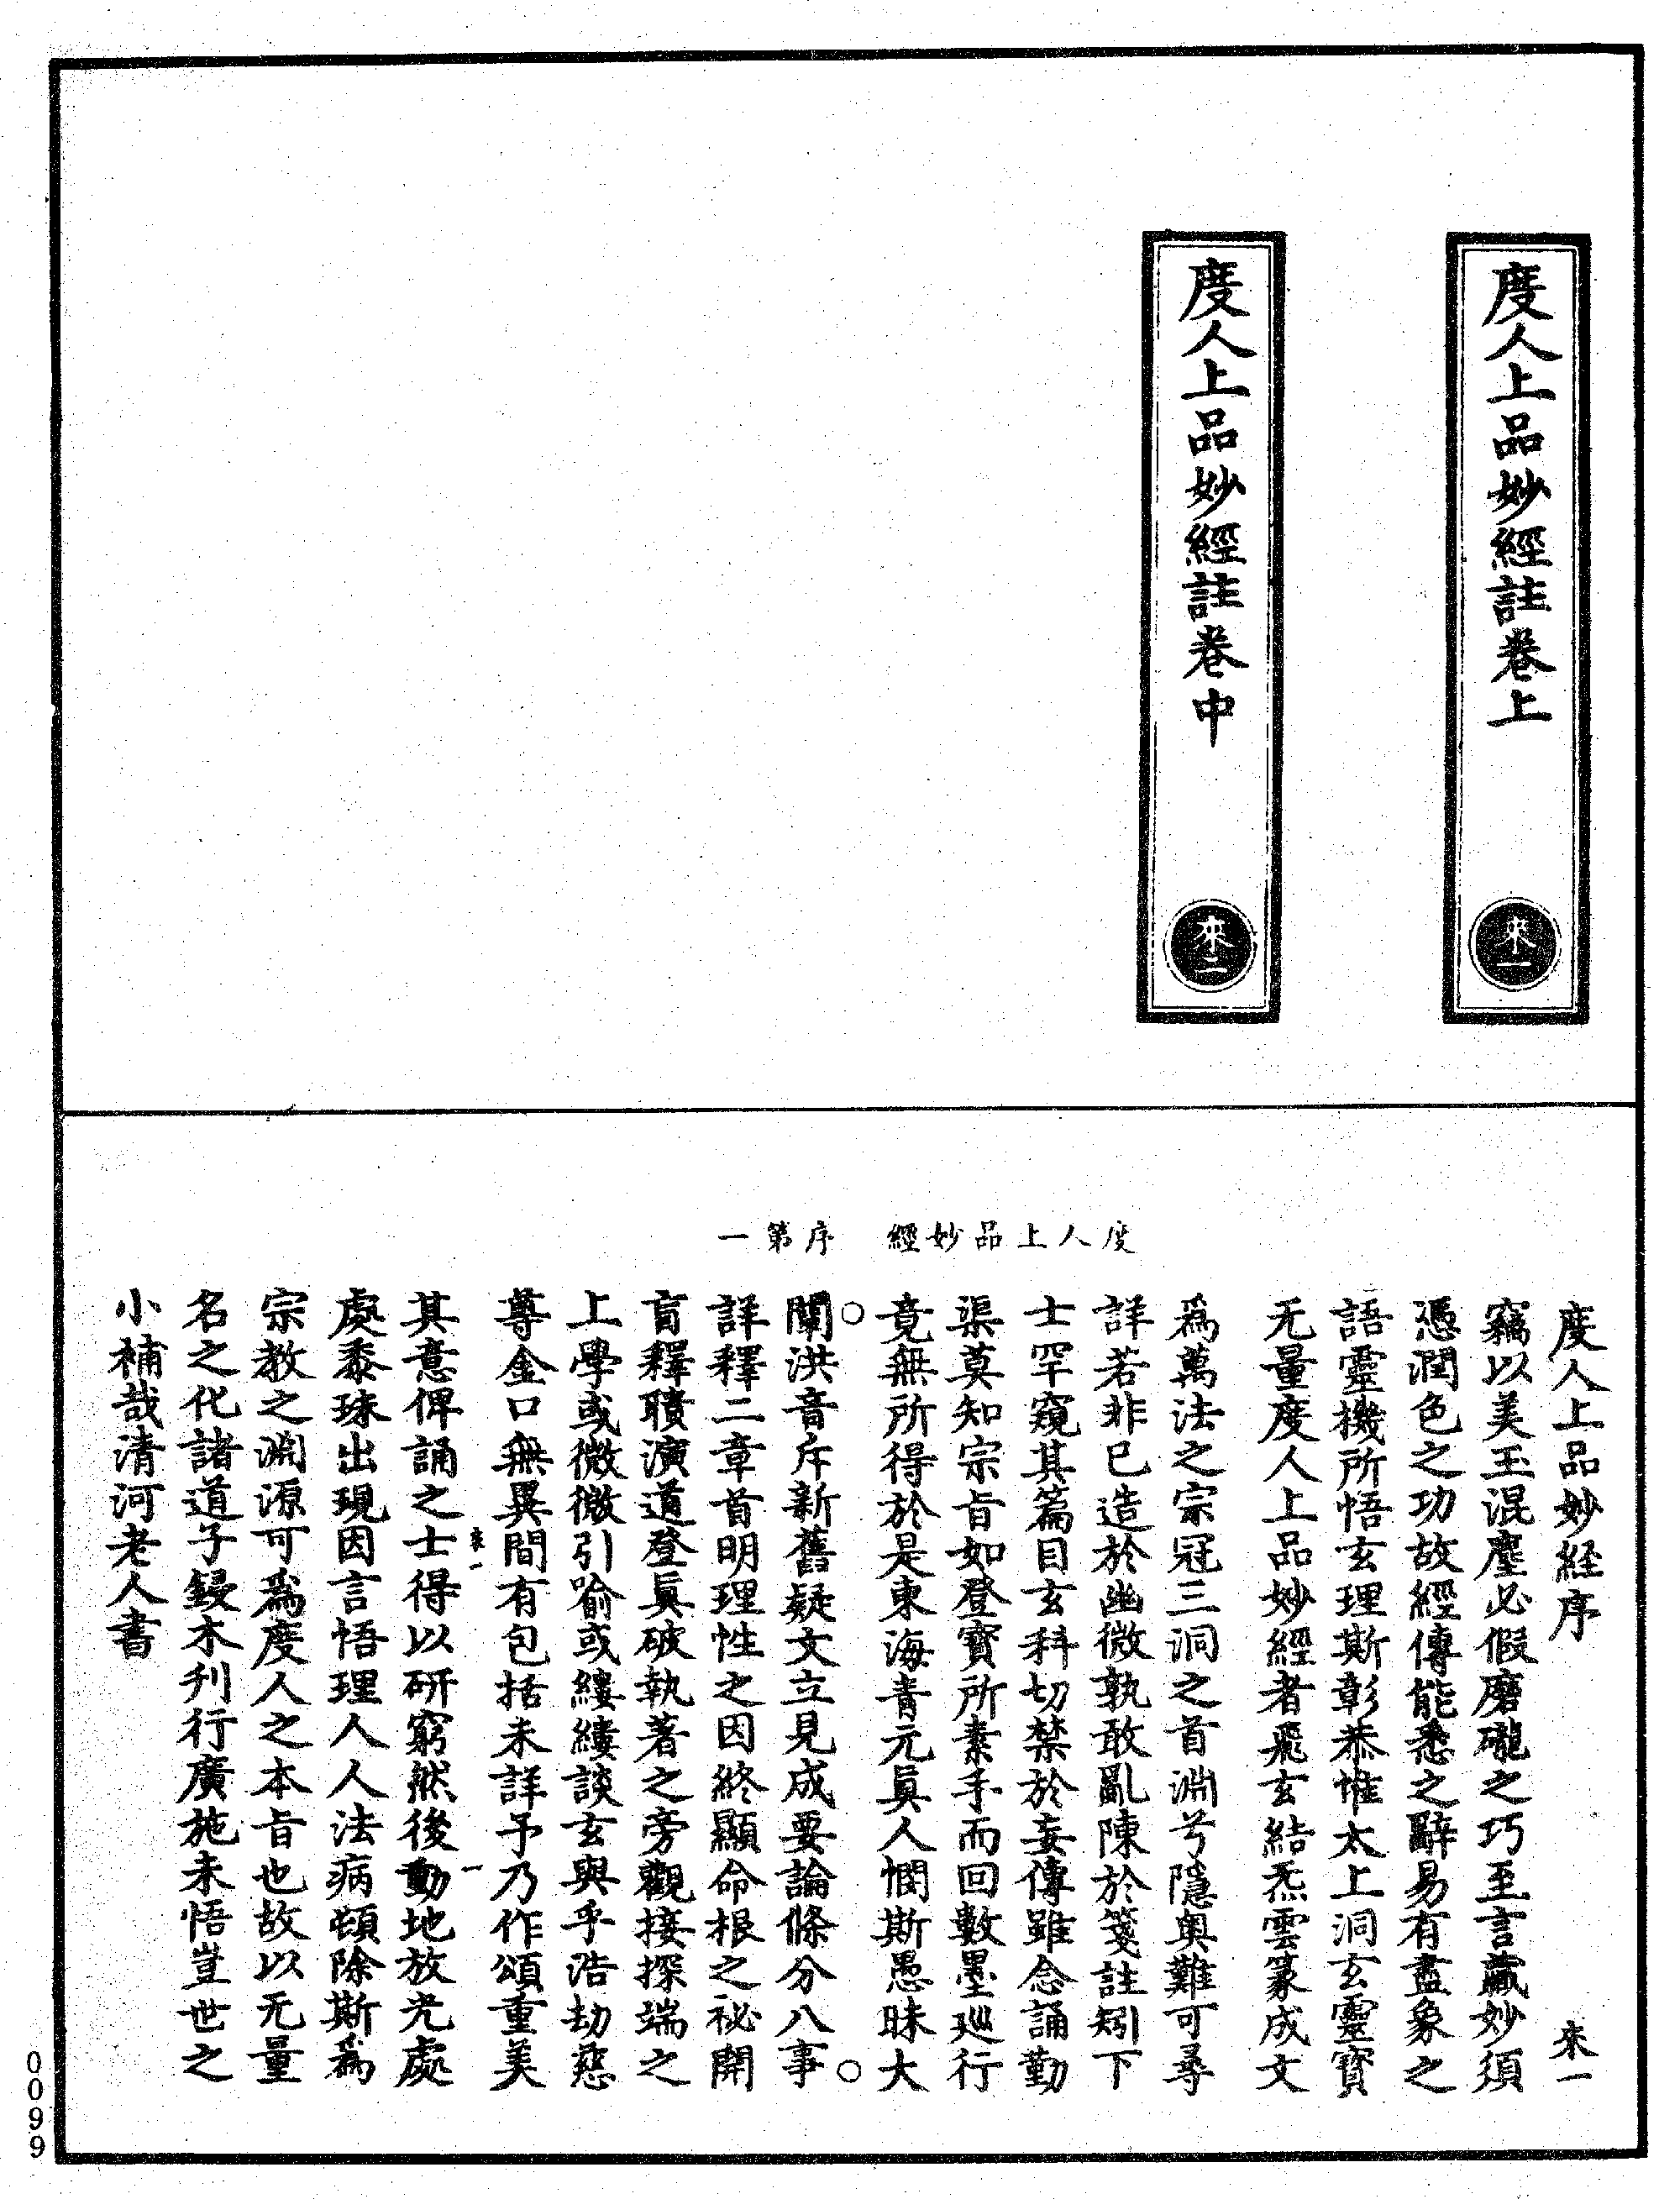 度人上品妙經註卷上
來一
度人上品妙經註卷中
來二
度人上品妙經　序第一
度人上品妙経序　來一
竊以美玉混塵必假磨礲之巧至言藏妙須
憑潤色之功故經傳能悉之辭易有盡象之
語靈機所悟玄理斯彰恭惟太上洞玄靈寶
无量度人上品妙經者飛玄結炁雲篆成文
爲萬法之宗冠三洞之首淵兮隱奥難可尋
詳若非已造於幽微孰敢亂陳於箋註矧下
士罕窺其篇目玄科切禁於妄傳雖念誦勤
渠莫知宗旨如登寶所素手而回數墨巡行
竟無所得於是東海青元眞人憫斯愚昧大
闡洪音斥新舊疑文立見成要論條分八事
詳釋二章首明理性之因終顯命根之祕開
盲釋聵演道登眞破執著之旁觀接探端之
上學或微微引喻或縷縷談玄與乎浩劫慈
尊金口無異間有包括未詳予乃作頌重美
其意俾誦之士得以研窮然後動地放光處
處黍珠出現因言悟理人人法病頓除斯爲
宗教之淵源可爲度人之本旨也故以无量
名之化諸道子鋟木刋行廣施未悟豈世之
小補哉清河老人書
來一
一
0099